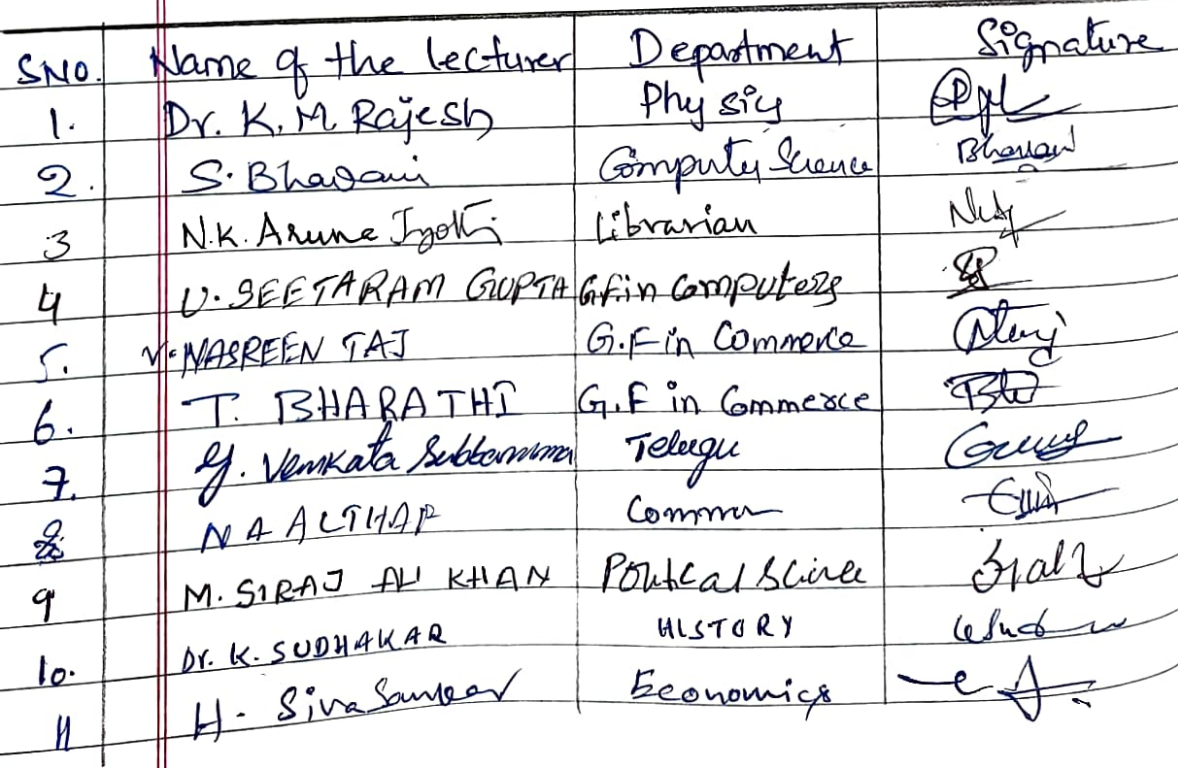 SNO. Name of the lecturer Department Signature
1. Dr. K. M. Rajesh Physics
2. S. Bhavani Computer Science Bhavani
3 N.K. Aruna Jyothi Librarian
4 U. SEETARAM GUPTA G.F in Computers
5. V. NASREEN TAJ G.F in Commerce
6. T. BHARATHI G.F in Commerce
7. G. Venkata Subbamma Telugu
8 N A ALTHAF Commerce
9 M. SIRAJ ALI KHAN Political Science
10. Dr. K. SUDHAKAR HISTORY
11 H. Siva Sankar Economics